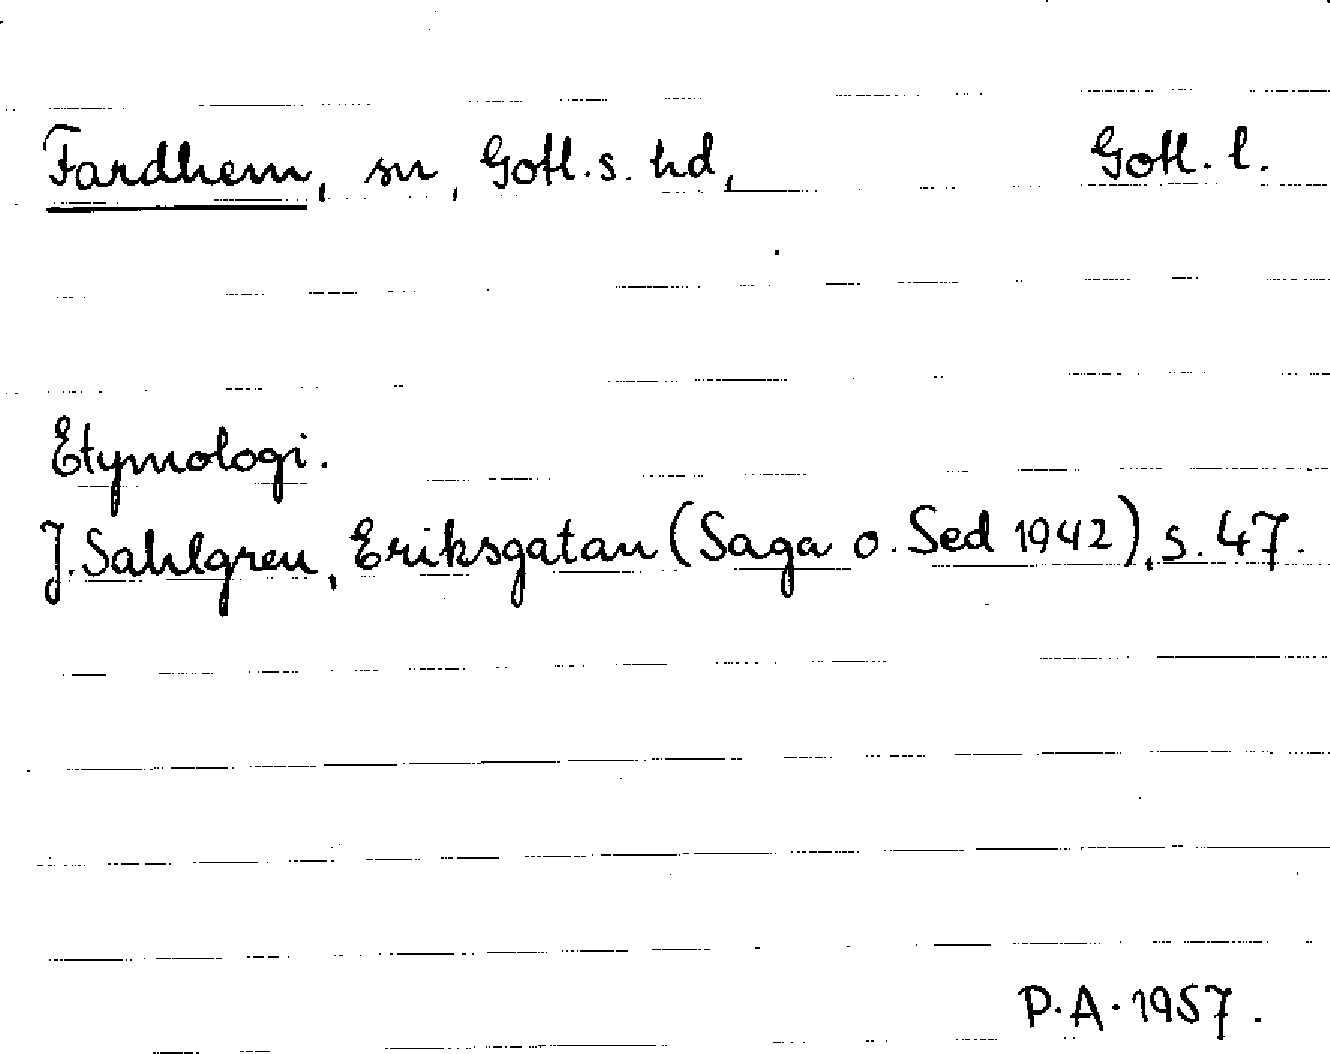 Fardhem, sn, Gotl. s. hd, Gotl. l.
Etymologi.
J. Sahlgren, Eriksgatan (Saga o. Sed 1942), s. 47.
P. A. 1957.